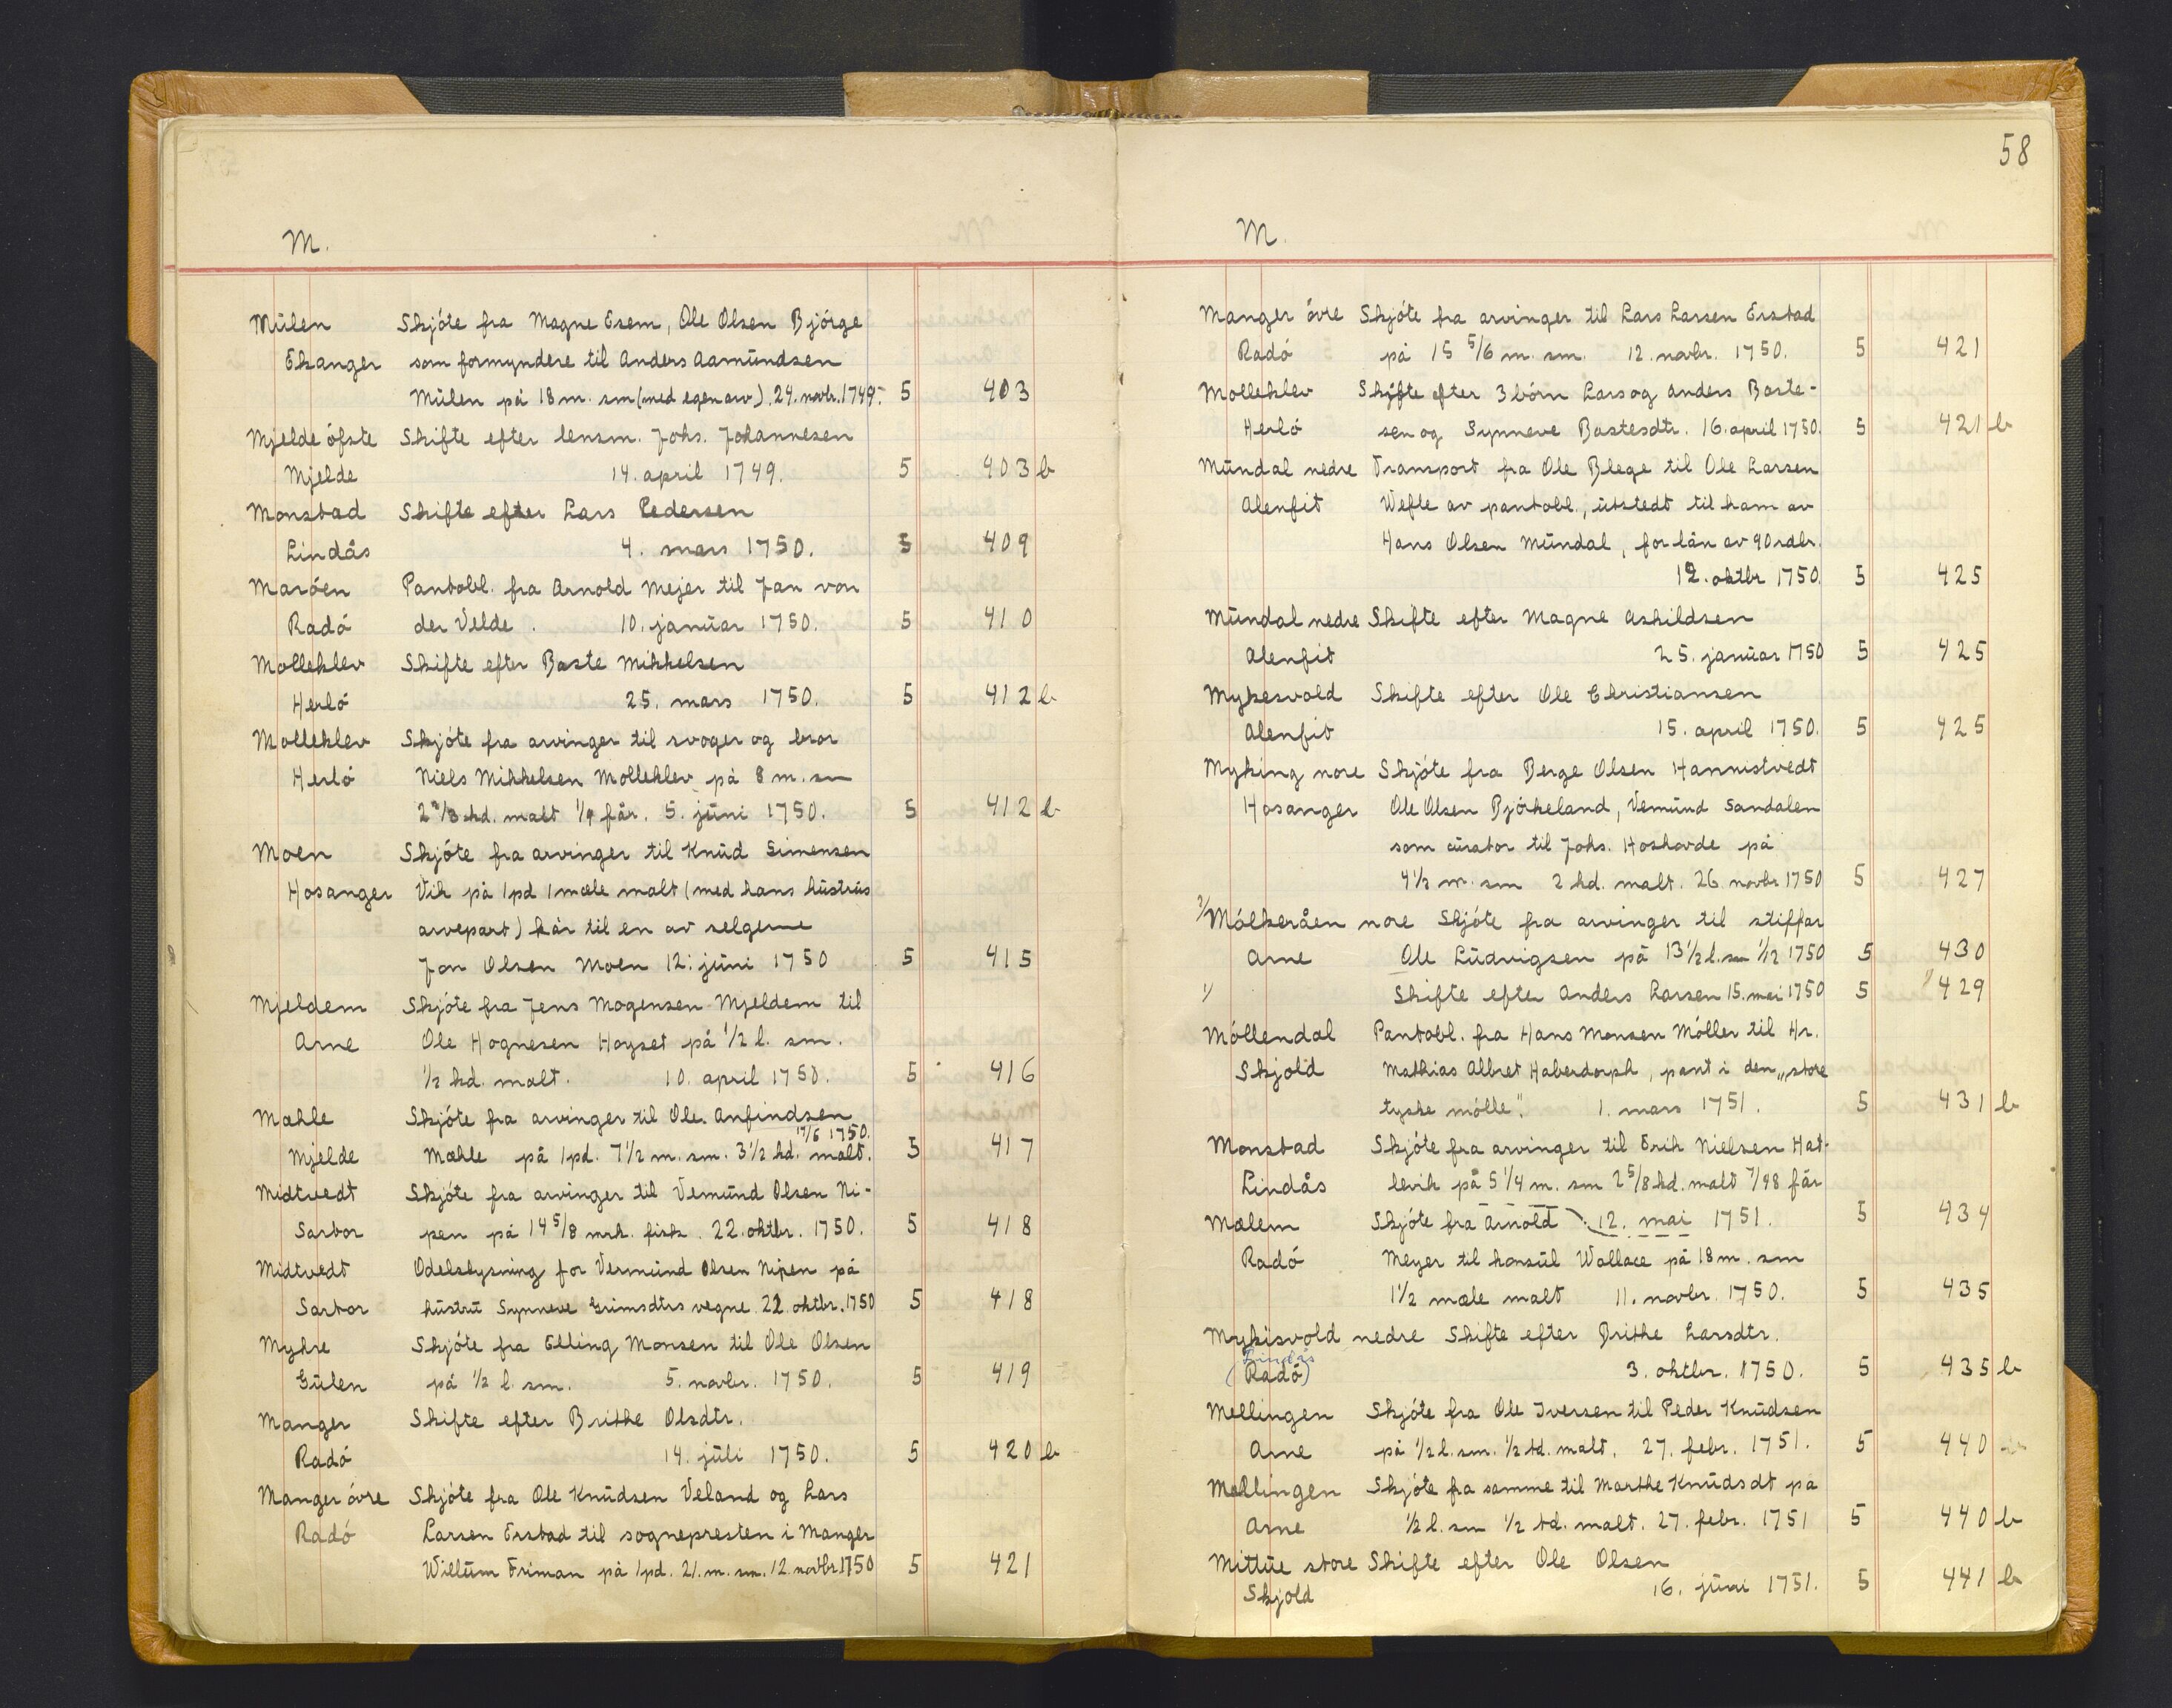 M.
Mülen Skjöte fra Magne Esem, Ole Olsen Bjórge
Ekanger som formyndere til Anders Aamündsen
Mülen på 18 m. sm (med egen arv). 24. novbr. 1749. 5 403
Mjelde ófste Skifte efter lensm. Johs. Johannesen
Mjelde 14. april 1749. 5 403 b
Monstad Skifte efter Lars Pedersen
Lindås 4. mars 1750. 5 409
Maróen Pantobl. fra Arnold Mejer til Jan von
Radó der Velde. 10. janüar 1750. 5 410
Molleklev Skifte efter Baste Mikkelsen
Herló 25. mars 1750. 5 412 b
Molleklev Skjóte fra arvinger til svoger og bror
Herló Niels Mikkelsen Molleklev på 8 m. sm
2 2/3 hd. malt 1/4 fár. 5. jüni 1750. 5 412 b
Moen Skjóte fra arvinger til Knüd Simensen
Hosanger Vik på 1 pd 1 mæle malt (med hans hüstrüs
arvepart) kår til en av selgerne
Jon Olsen Moen 12. jüni 1750 5 415
Mjeldem Skjóte fra Jens Mogensen Mjeldem til
Arne Ole Hognesen Hoyset på 1/2 l. sm.
1/2 hd. malt. 10. april 1750. 5 416
Mæhle Skjóte fra arvinger til Ole Anfindsen
17/6 1750.
Mjelde Mæhle på 1 pd. 7 1/2 m. sm. 3 1/2 hd. malt. 5 417
Midtvedt Skjóte fra arvinger til Vemünd Olsen Ni-
Sartor pen på 14 5/8 mrk. fisk. 22. oktbr. 1750. 5 418
Midtvedt Odelslysning for Vermünd Olsen Nipen på
Sartor hüstrü Synneve Grimsdtrs vegne 22 oktbr. 1750 5 418
Mykre Skjóte fra Elling Monsen til Ole Olsen
Gülen på 1/2 l. sm. 5. novbr. 1750. 5 419
Manger Skifte efter Brithe Olsdtr.
Radó 14. jüli 1750. 5 420 b
Manger óvre Skjóte fra Ole Knüdsen Veland og Lars
Radó Larsen Erstad til sognepresten i Manger
Willüm Friman på 1 pd. 21. m. sm. 12. novbr. 1750 5 421
58
M.
Manger óvre Skjóte fra arvinger til Lars Larsen Erstad
Radó på 15 5/6 m. sm. 12. novbr. 1750. 5 421
Molleklev Skifte efter 3 bórn Lars og Anders Baste-
Herló sen og Synneve Bastesdtr. 16. april 1750. 5 421 b
Mündal nedre Transport fra Ole Blege til Ole Larsen
Alenfit Wefle av pantobl., ütstedt til ham av
Hans Olsen Mündal, for lån av 90 rdlr.
12. oktbr 1750. 5 425
Mündal nedre Skifte efter Magne Askildsen
Alenfit 25. janüar 1750 5 425
Mykesvold Skifte efter Ole Christiansen
Alenfit 15. april 1750. 5 425
Myking nore Skjóte fra Berge Olsen Hannistvedt
Hosanger Ole Olsen Bjórkeland, Vemünd Sandalen
som cürator til Johs. Hoshovde på
4 1/2 m. sm 2 hd. malt. 26. novbr 1750 5 427
2/ Mólkeråen nore Skjóte fra arvinger til stiffar
Arne Ole Lüdvigsen på 13 1/2 l. sm 1/12 1750 5 430
1/ Skifte efter Anders Larsen 15. mai 1750 5 1/ 429
Móllendal Pantobl. fra Hans Monsen Móller til Hr.
Skjold Mathias Albret Haberdorph, pant i den „store
tyske mólle". 1. mars 1751. 5 431 b
Monstad Skjóte fra arvinger til Erik Nielsen Hat-
Lindås levik på 5 1/4 m. sm 2 5/8 hd. malt 7/48 fár
Mælem Skjóte fra Arnold 12. mai 1751. 5 434
Radó Meyer til konsül Wallace på 18 m. sm
1 1/2 mæle malt 11. novbr. 1750. 5 435
Mykisvold nedre Skifte efter Brithe Larsdtr.
Lindås
(Radó) 3. oktbr. 1750. 5 435 b
Mellingen Skjóte fra Ole Iversen til Peder Knüdsen
Arne på 1/2 l. sm. 1/2 td. malt. 27. febr. 1751. 5 440
Mellingen Skjóte fra samme til Marthe Knüdsdt på
Arne 1/2 l. sm 1/2 td. malt. 27. febr. 1751 5 440 b
Mittüe store Skifte efter Ole Olsen
Skjold 16. jüni 1751. 5 441 b